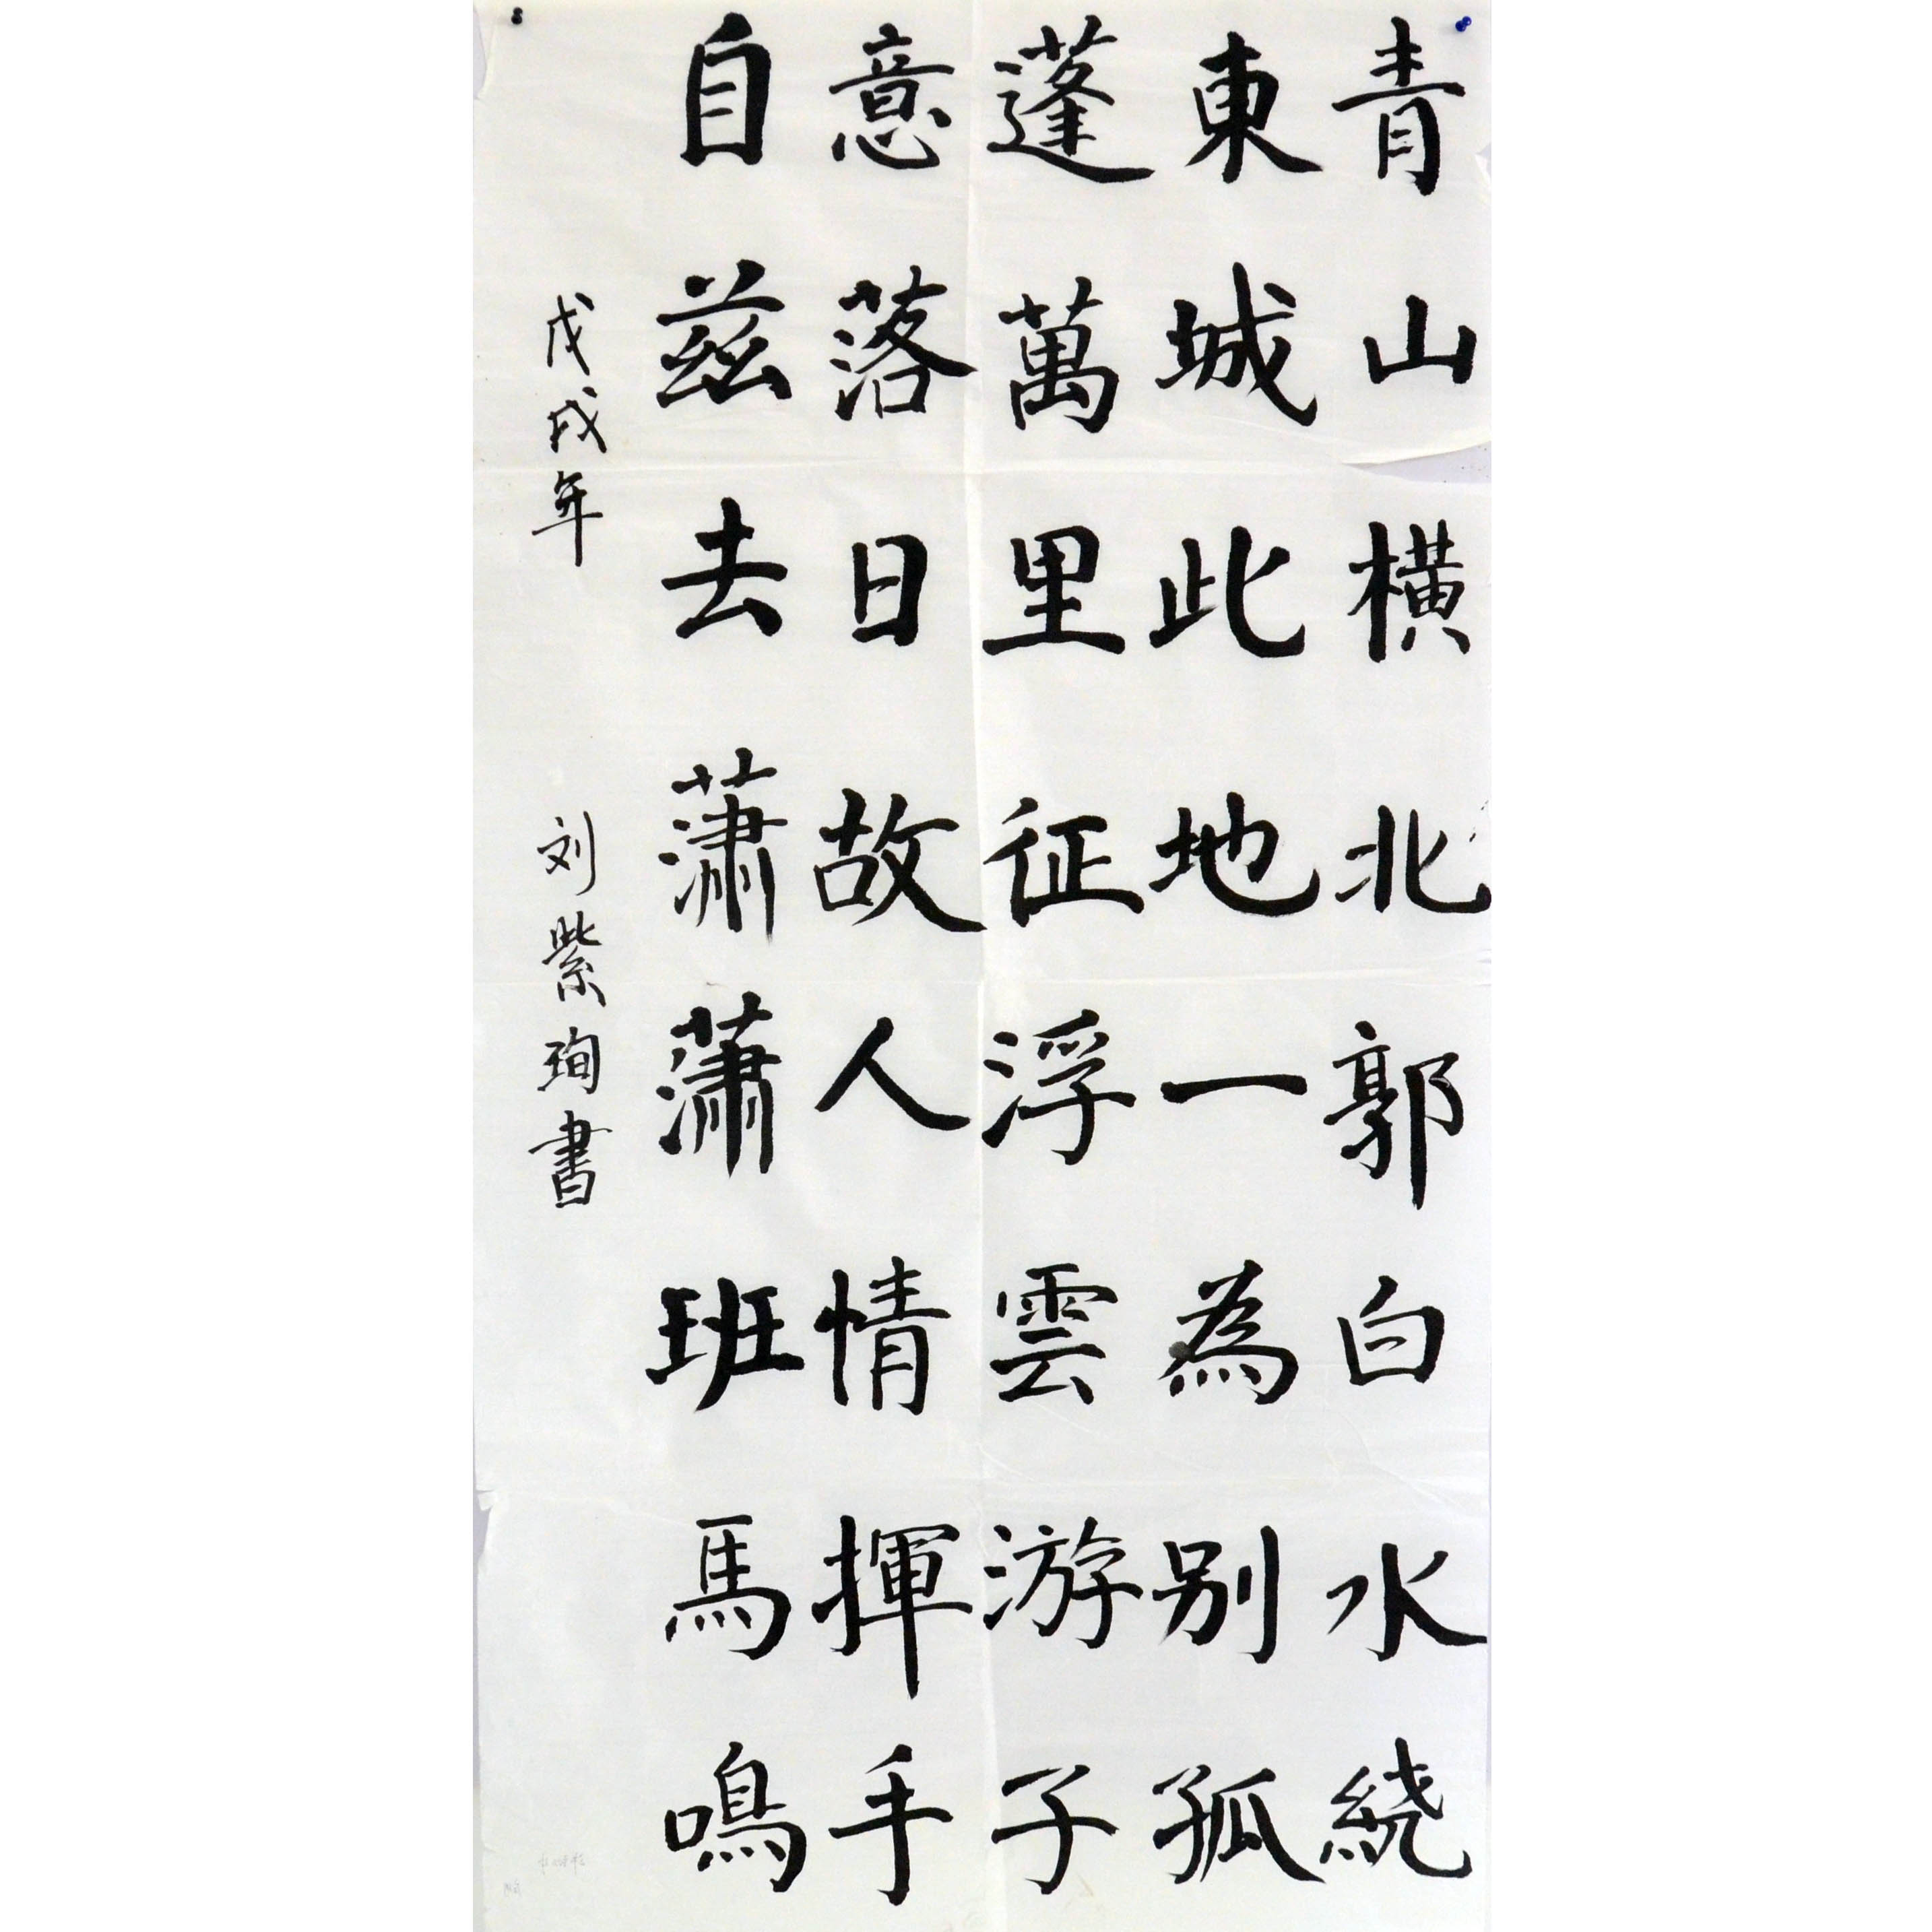 青山橫北郭白水繞
東城此地一為别孤
蓬萬里征浮雲游子
意落日故人情揮手
自兹去蕭蕭班馬鳴
戊戌年 刘紫珣書